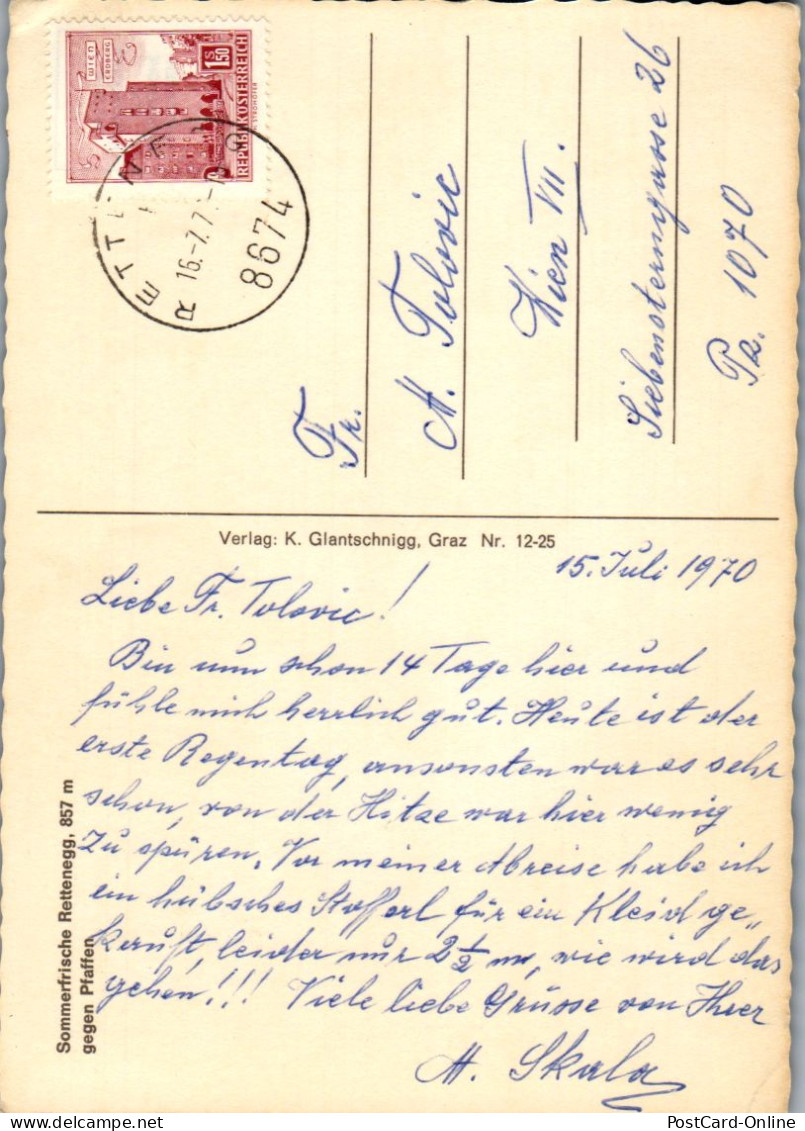 WIEN
ERDBERG
S 1.50
REPUBLIK ÖSTERREICH
RETTENEGG
16.-7.7
8674
Fr.
H. Tolovic
Wien VII.
Siebensterngasse 26
Pz. 1070
Verlag: K. Glantschnigg, Graz Nr. 12-25
15. Juli 1970
Liebe Fr. Tolovic!
Bin nun schon 14 Tage hier und
fühle mich herrlich gut. Heute ist der
erste Regentag, ansonsten war es sehr
schon, von der Hitze war hier wenig
zu spüren. Vor meiner Abreise habe ich
ein hübsches Stofferl für ein Kleid ge„
kauft, leider nur 2 1/2 m, wie wird das
gehen!!! Viele liebe Grüsse von Ihrer
H. Skala
Sommerfrische Rettenegg, 857 m
gegen Pfaffen
PostCard-Online